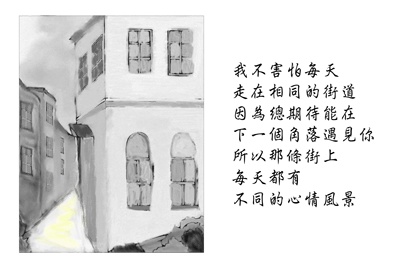 我不害怕每天
走在相同的街道
因為總期待能在
下一個角落遇見你
所以那條街上
每天都有
不同的心情風景